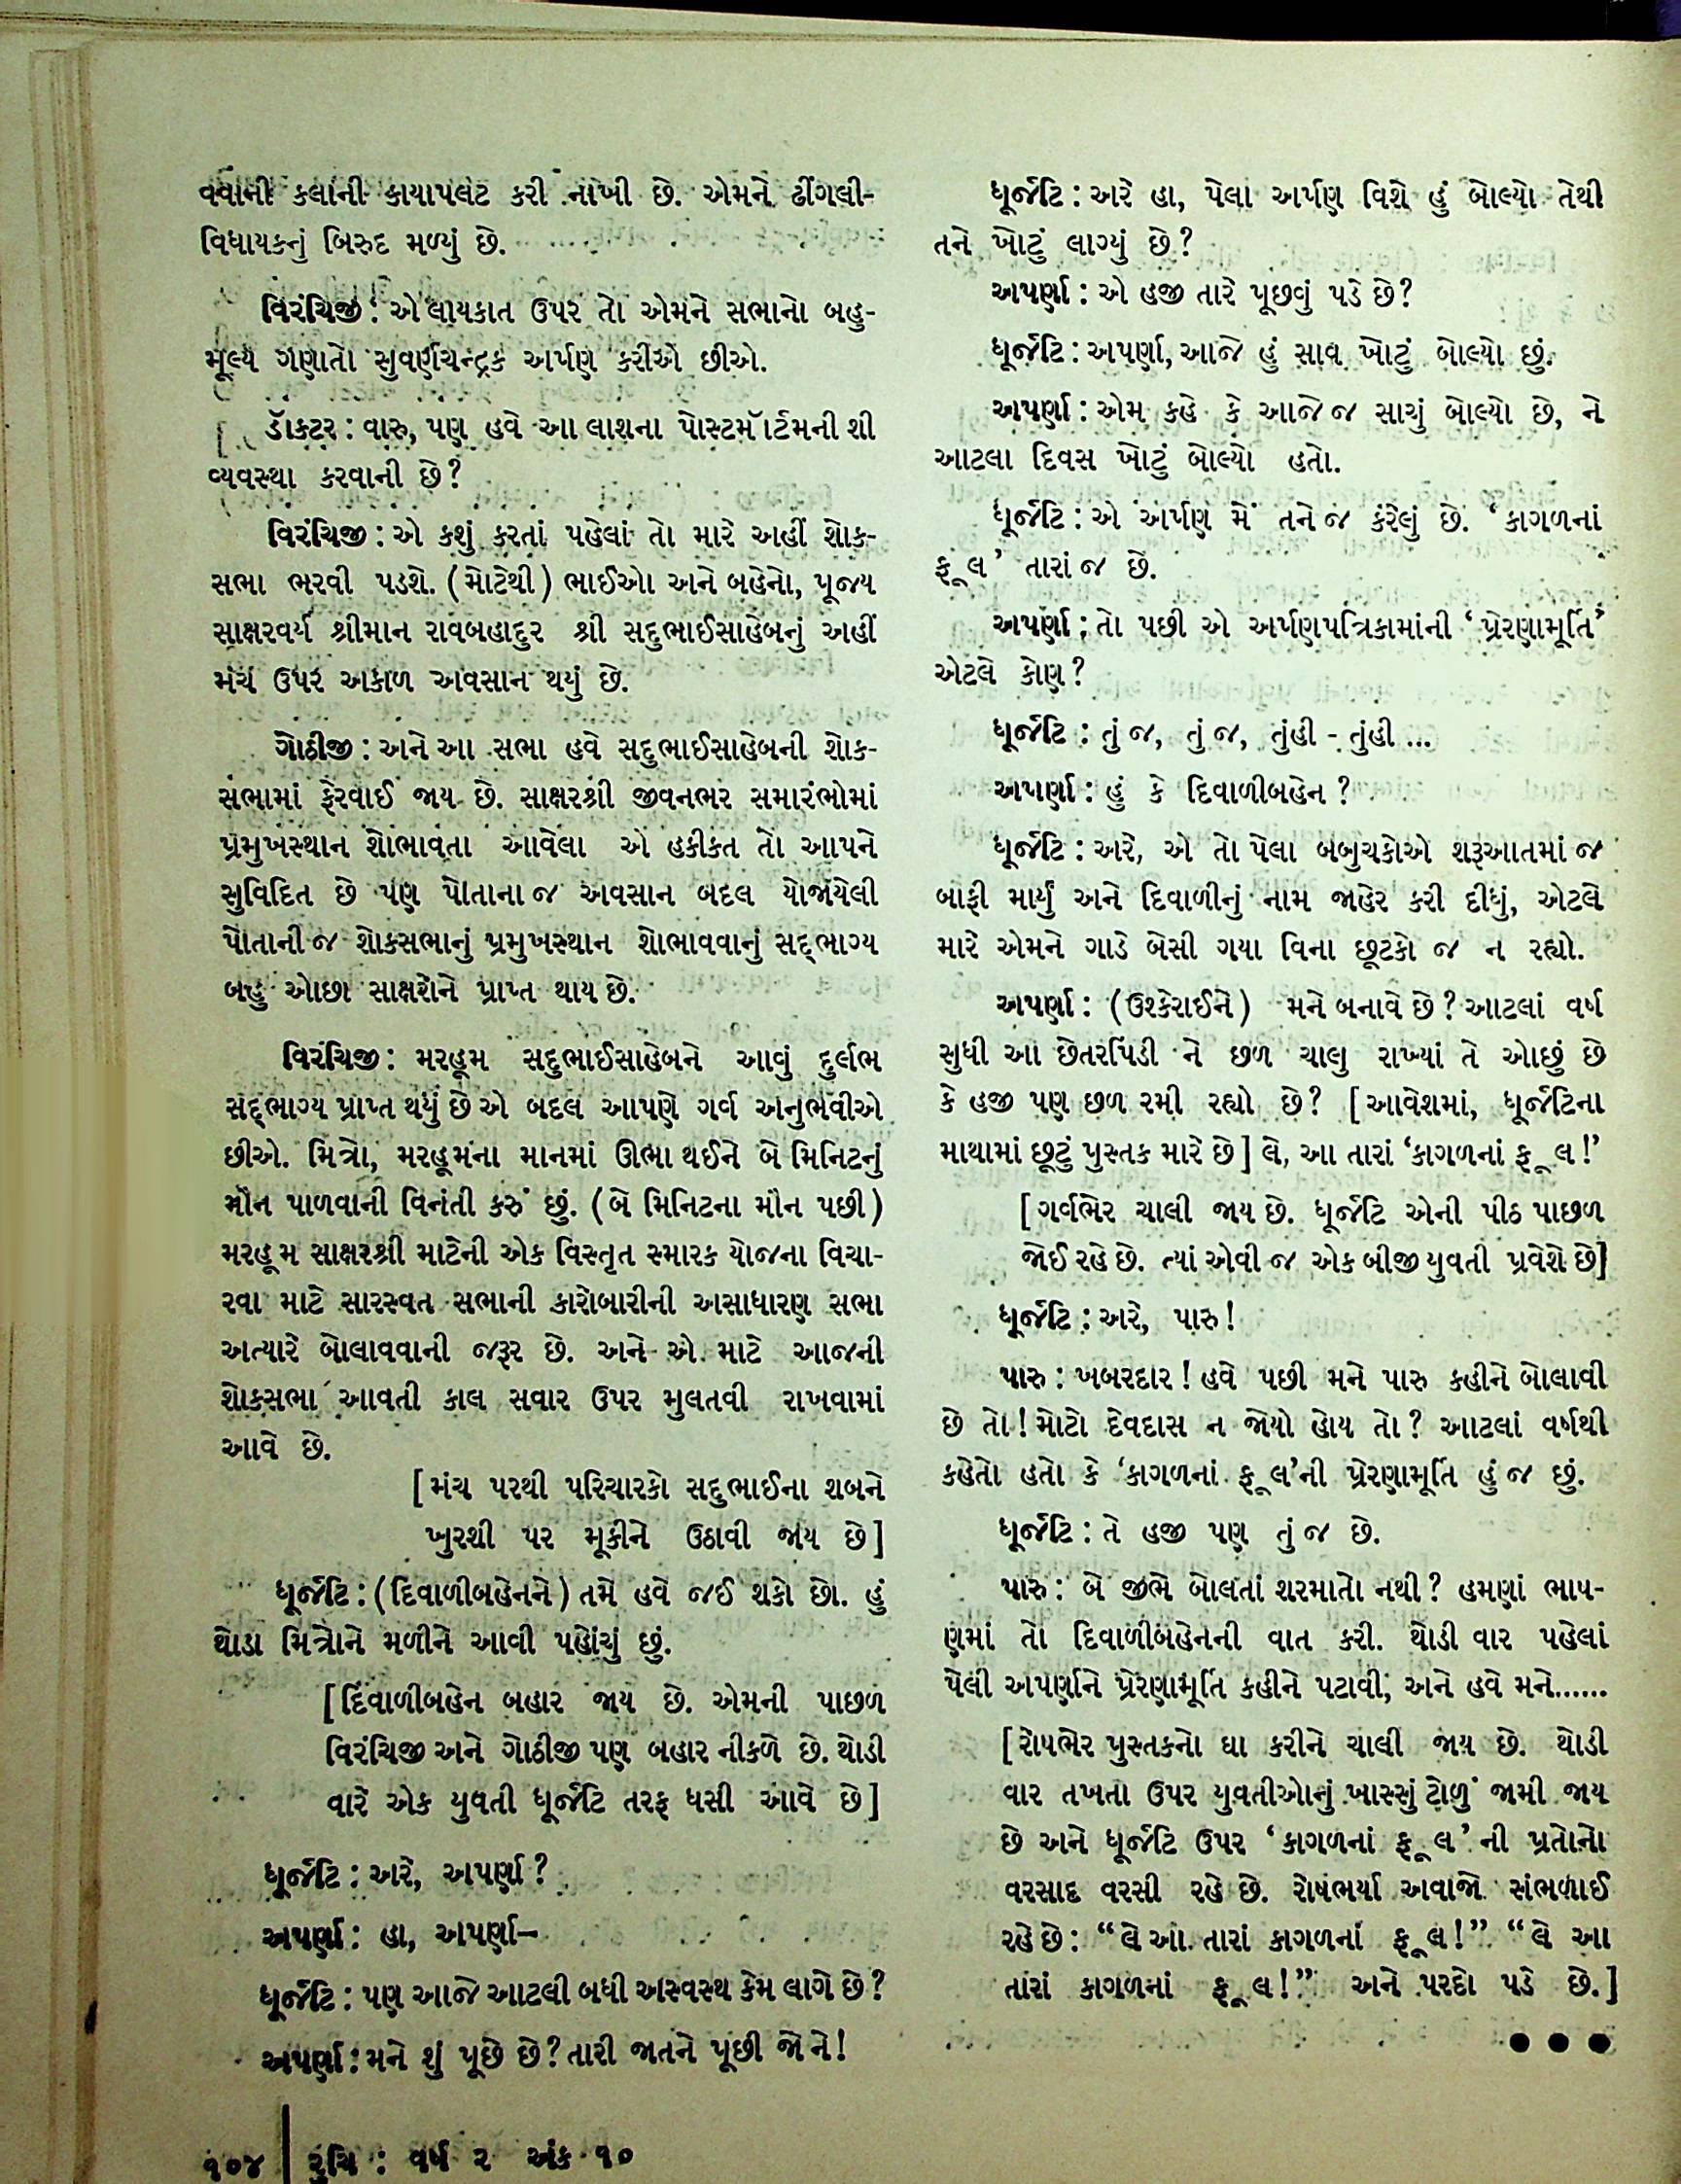 વવાની કલાની કાયાપલટ કરી નાખી છે. એમને ઢીંગલી-
વિધાયકનું બિરુદ મળ્યું છે.
વિરંચિજી : એ લાયકાત ઉપર તો એમને સભાનો બહુ-
મૂલ્ય ગણાતો સુવર્ણચન્દ્રક અર્પણ કરીએ છીએ.
ડૉક્ટર : વારુ, પણ હવે આ લાશના પોસ્ટમૉર્ટમની શી
વ્યવસ્થા કરવાની છે?
વિરંચિજી : એ કશું કરતાં પહેલાં તો મારે અહીં શોક-
સભા ભરવી પડશે. (મોટેથી) ભાઈઓ અને બહેનો, પૂજ્ય
સાક્ષરવર્ય શ્રીમાન રાવબહાદુર શ્રી સદુભાઈસાહેબનું અહીં
મંચ ઉપર અકાળ અવસાન થયું છે.
ગોઠીજી : અને આ સભા હવે સદુભાઈસાહેબની શોક-
સભામાં ફેરવાઈ જાય છે. સાક્ષરશ્રી જીવનભર સમારંભોમાં
પ્રમુખસ્થાન શોભાવતા આવેલા એ હકીકત તો આપને
સુવિદિત છે પણ પોતાના જ અવસાન બદલ યોજાયેલી
પોતાની જ શોકસભાનું પ્રમુખસ્થાન શોભાવવાનું સદ્‌ભાગ્ય
બહુ ઓછા સાક્ષરોને પ્રાપ્ત થાય છે.
વિરંચિજી : મરહૂમ સદુભાઈસાહેબને આવું દુર્લભ
સદ્‌ભાગ્ય પ્રાપ્ત થયું છે એ બદલ આપણે ગર્વ અનુભવીએ
છીએ. મિત્રો, મરહૂમના માનમાં ઊભા થઈને બે મિનિટનું
મૌન પાળવાની વિનંતી કરું છું. (બે મિનિટના મૌન પછી)
મરહૂમ સાક્ષરશ્રી માટેની એક વિસ્તૃત સ્મારક યોજના વિચા-
રવા માટે સારસ્વત સભાની કારોબારીની અસાધારણ સભા
અત્યારે બોલાવવાની જરૂર છે. અને એ માટે આજની
શોકસભા આવતી કાલ સવાર ઉપર મુલતવી રાખવામાં
આવે છે.
[મંચ પરથી પરિચારકો સદુભાઈના શબને
ખુરશી પર મૂકીને ઉઠાવી જાય છે]
ધૂર્જટિ : (દિવાળીબહેનને) તમે હવે જઈ શકો છો. હું
થોડા મિત્રોને મળીને આવી પહોંચું છું.
[દિવાળીબહેન બહાર જાય છે. એમની પાછળ
વિરંચિજી અને ગોઠીજી પણ બહાર નીકળે છે. થોડી
વારે એક યુવતી ધૂર્જટિ તરફ ધસી આવે છે]
ધૂર્જટિ : અરે, અપર્ણા?
અપર્ણા : હા, અપર્ણા—
ધૂર્જટિ : પણ આજે આટલી બધી અસ્વસ્થ કેમ લાગે છે?
અપર્ણા : મને શું પૂછે છે? તારી જાતને પૂછી જો ને!
૧૦૪ | રુચિ : વર્ષ ૨ અંક ૧૦
ધૂર્જટિ : અરે હા, પેલા અર્પણ વિશે હું બોલ્યો તેથી
તને ખોટું લાગ્યું છે?
અપર્ણા : એ હજી તારે પૂછવું પડે છે?
ધૂર્જટિ : અપર્ણા, આજે હું સાવ ખોટું બોલ્યો છું.
અપર્ણા : એમ કહે કે આજે જ સાચું બોલ્યો છે, ને
આટલા દિવસ ખોટું બોલ્યો હતો.
ધૂર્જટિ : એ અર્પણ મેં તને જ કરેલું છે. ‘કાગળનાં
ફૂલ’ તારાં જ છે.
અપર્ણા : તો પછી એ અર્પણપત્રિકામાંની ‘પ્રેરણામૂર્તિ’
એટલે કોણ?
ધૂર્જટિ : તું જ, તું જ, તુંહી - તુંહી ...
અપર્ણા : હું કે દિવાળીબહેન?
ધૂર્જટિ : અરે, એ તો પેલા બબુચકોએ શરૂઆતમાં જ
બાફી માર્યું અને દિવાળીનું નામ જાહેર કરી દીધું, એટલે
મારે એમને ગાડે બેસી ગયા વિના છૂટકો જ ન રહ્યો.
અપર્ણા : (ઉશ્કેરાઈને) મને બનાવે છે? આટલાં વર્ષ
સુધી આ છેતરપિંડી ને છળ ચાલુ રાખ્યાં તે ઓછું છે
કે હજી પણ છળ રમી રહ્યો છે? [આવેશમાં, ધૂર્જટિના
માથામાં છૂટું પુસ્તક મારે છે] લે, આ તારાં ‘કાગળનાં ફૂલ!’
[ગર્વભેર ચાલી જાય છે. ધૂર્જટિ એની પીઠ પાછળ
જોઈ રહે છે. ત્યાં એવી જ એક બીજી યુવતી પ્રવેશે છે]
ધૂર્જટિ : અરે, પારુ!
પારુ : ખબરદાર! હવે પછી મને પારુ કહીને બોલાવી
છે તો! મોટો દેવદાસ ન જોયો હોય તો? આટલાં વર્ષથી
કહેતો હતો કે ‘કાગળનાં ફૂલ’ની પ્રેરણામૂર્તિ હું જ છું.
ધૂર્જટિ : તે હજી પણ તું જ છે.
પારુ : બે જીભે બોલતાં શરમાતો નથી? હમણાં ભાષ-
ણમાં તો દિવાળીબહેનની વાત કરી. થોડી વાર પહેલાં
પેલી અપર્ણાને પ્રેરણામૂર્તિ કહીને પટાવી; અને હવે મને......
[રોષભેર પુસ્તકનો ઘા કરીને ચાલી જાય છે. થોડી
વાર તખતા ઉપર યુવતીઓનું ખાસ્સું ટોળું જામી જાય
છે અને ધૂર્જટિ ઉપર ‘કાગળનાં ફૂલ’ની પ્રતોનો
વરસાદ વરસી રહે છે. રોષભર્યા અવાજો સંભળાઈ
રહે છે : “લે આ તારાં કાગળનાં ફૂલ!” “લે આ
તારાં કાગળનાં ફૂલ!” અને પરદો પડે છે.]
● ● ●